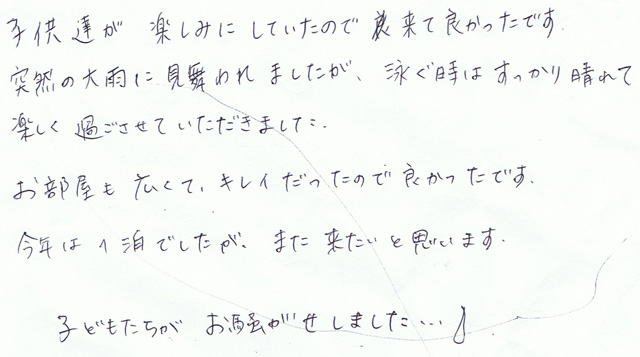 子供達が 楽しみにしていたので 来て良かったです.
突然の大雨に見舞われましたが、泳ぐ時はすっかり晴れて
楽しく過ごさせていただきました.
お部屋も広くて、キレイだったので良かったです.
今年は1泊でしたが、また来たいと思います.
子どもたちが お騒がせしました…